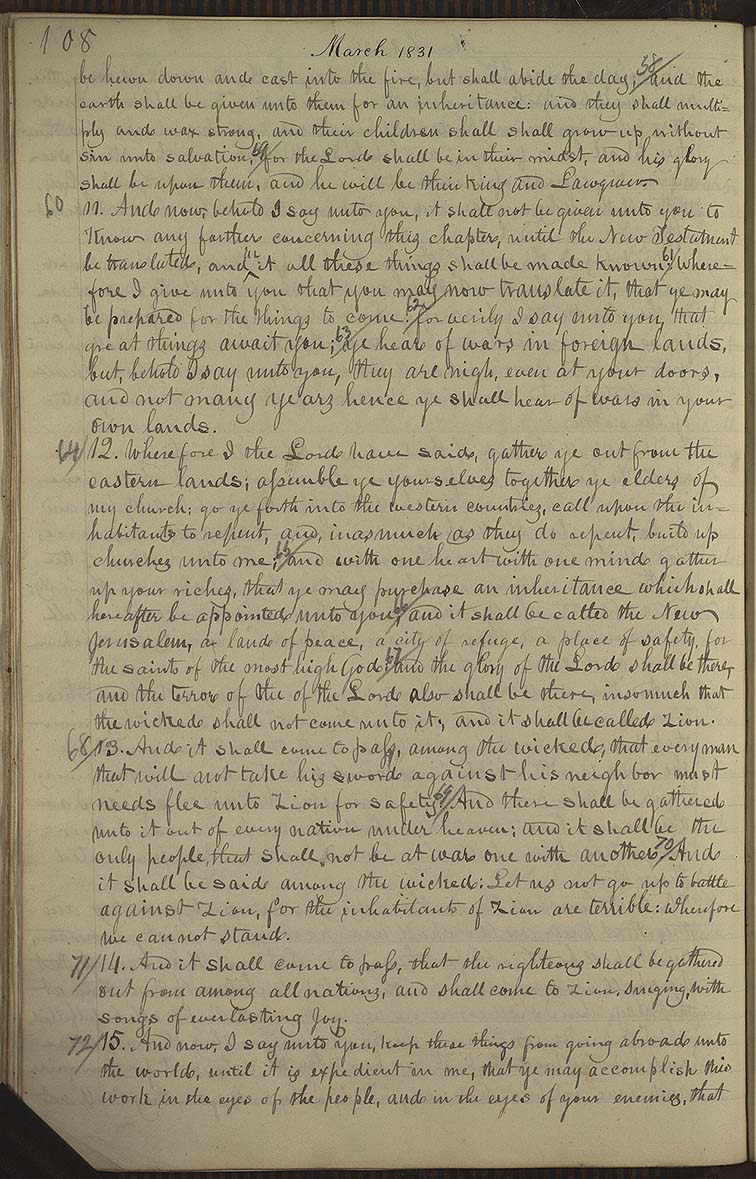 108
March 1831
be hewn down and cast into the fire, but shall abide the day; 58/ and the
earth shall be given unto them for an inheritance: and they shall multi=
ply and wax strong, and their children shall shall grow up without
sin unto salvation, 59/ for the Lord shall be in their midst, and his glory
shall be upon them, and he will be their King and Lawgiver.
60 11. And now, behold I say unto you, it shall not be given unto you to
Know any farther concerning this chapter, until the New Testament
be translated, and in it all these things shall be made known: 61/ Where=
fore I give unto you that you may now translate it, that ye may
be prepared for the things to come: 62/ for verily I say unto you, that
great things await you; 63/ ye hear of wars in foreign lands,
but, behold I say unto you, they are nigh, even at your doors,
and not many years hence ye shall hear of wars in your
own lands.
64/ 12. Wherefore I the Lord have said, gather ye out from the
eastern lands; assemble ye yourselves together ye elders of
my church: go ye forth into the western countries, call upon the in=
habitants to repent, and, inasmuch as they do repent, build up
churches unto me; 65/ and with one heart with one mind gather
up your riches, that ye may purchase an inheritance which shall
hereafter be appointed unto you, 66/ and it shall be called the New
Jerusalem, a land of peace, a city of refuge, a place of safety, for
the saints of the most high God; 67/ and the glory of the Lord shall be there,
and the terror of the of the Lord also shall be there, insomuch that
the wicked shall not come unto it, and it shall be called Zion.
68/ 13. And it shall come to pass, among the wicked, that every man
that will not take his sword against his neighbor must
needs flee unto Zion for safety. 69/ And there shall be gathered
unto it out of every nation under heaven; and it shall be the
only people, that shall not be at war one with another. 70/ And
it shall be said among the wicked: Let us not go up to battle
against Zion, for the inhabitants of Zion are terrible: wherefore
we can not stand.
71/ 14. And it shall come to pass, that the righteous shall be gathered
out from among all nations, and shall come to Zion, singing, with
songs of everlasting Joy.
72/ 15. And now, I say unto you, keep these things from going abroad unto
the world, until it is expedient in me, that ye may accomplish this
work in the eyes of the people, and in the eyes of your enemies, that